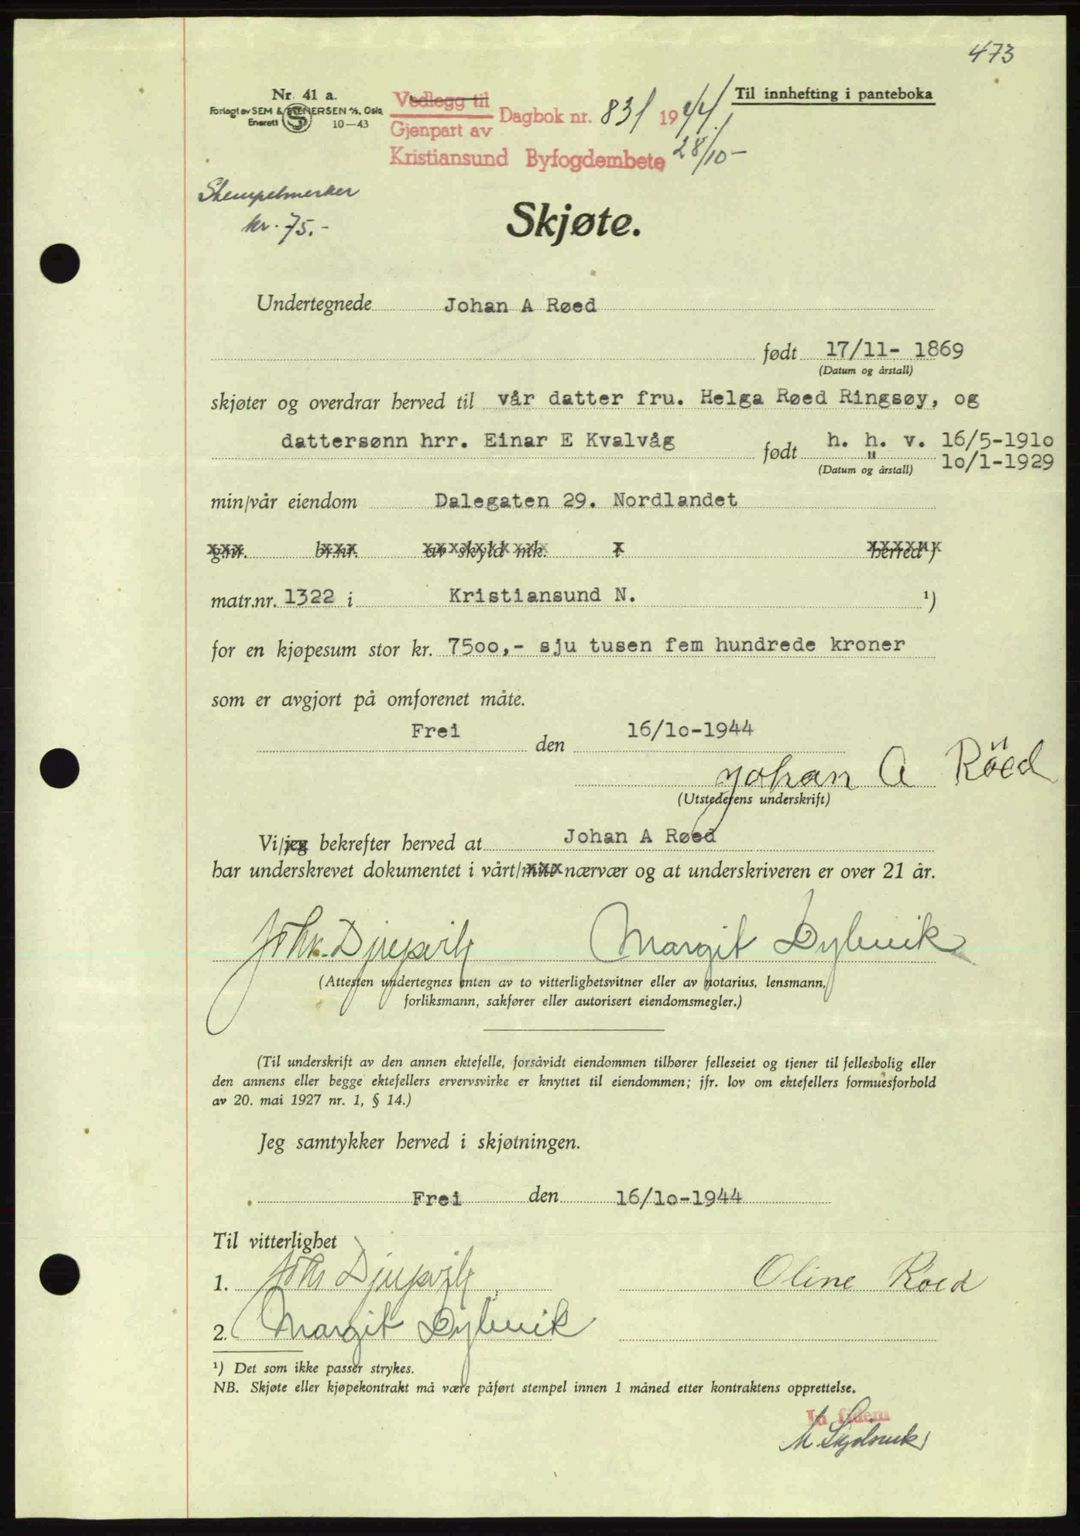 473
Nr. 41 a.
Forlagt av SEM & STENERSEN A/S, Oslo
Enerett 10-43
Vedlegg til
Gjenpart av
Dagbok nr. 831 1944
28/10-
Kristiansund Byfogdembete
Til innhefting i panteboka
Stempelmerker
kr. 75.-
Skjøte.
Undertegnede Johan A Røed
født 17/11- 1869
(Datum og årstall)
skjøter og overdrar herved til vår datter fru. Helga Røed Ringsøy, og
dattersønn hrr. Einar E Kvalvåg født h. h. v. 16/5-1910
(Datum og årstall) " 10/1-1929
min/vår eiendom Dalegaten 29. Nordlandet
gnr. br.nr. av skyld mk. i herred ¹)
matr.nr. 1322 i Kristiansund N. ¹)
for en kjøpesum stor kr. 7500,- sju tusen fem hundrede kroner
som er avgjort på omforenet måte.
Frei den 16/10-1944
Johan A Röed
(Utstederens underskrift)
Vi/jeg bekrefter herved at Johan A Røed
har underskrevet dokumentet i vårt/mitt nærvær og at underskriveren er over 21 år.
Margit
(Attesten undertegnes enten av to vitterlighetsvitner eller av notarius, lensmann,
forliksmann, sakfører eller autorisert eiendomsmegler.)
(Til underskrift av den annen ektefelle, forsåvidt eiendommen tilhører felleseiet og tjener til fellesbolig eller
den annens eller begge ektefellers ervervsvirke er knyttet til eiendommen; jfr. lov om ektefellers formuesforhold
av 20. mai 1927 nr. 1, § 14.)
Jeg samtykker herved i skjøtningen.
Frei den 16/10-1944
Til vitterlighet
1. Oline Roed
2. Margit
¹) Det som ikke passer strykes.
NB. Skjøte eller kjøpekontrakt må være påført stempel innen 1 måned etter kontraktens opprettelse.
In fidem